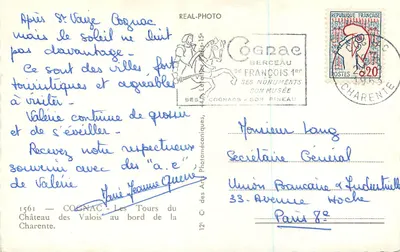 REAL-PHOTO
Après St Vaize Cognac
mais le soleil ne luit
pas davantage -
Ce sont des villes fort
touristiques et agréables
à visiter -
Valérie continue de grossir
et de s'éveiller -
Recevez notre respectueux
souvenir avec des "a.e"
de Valérie
Marie Jeanne
1561 — COGNAC - Les Tours du
Château des Valois au bord de la
Charente.
COGNAC
BERCEAU
DE FRANÇOIS 1er
SES MONUMENTS
SON MUSÉE
SES COGNACS - SON PINEAU
REPUBLIQUE FRANÇAISE
POSTES
0,20
CHARENTE
Monsieur Lang
Secrétaire Général
Union Financière et Industrielle
33. Avenue Hoche
Paris 8e